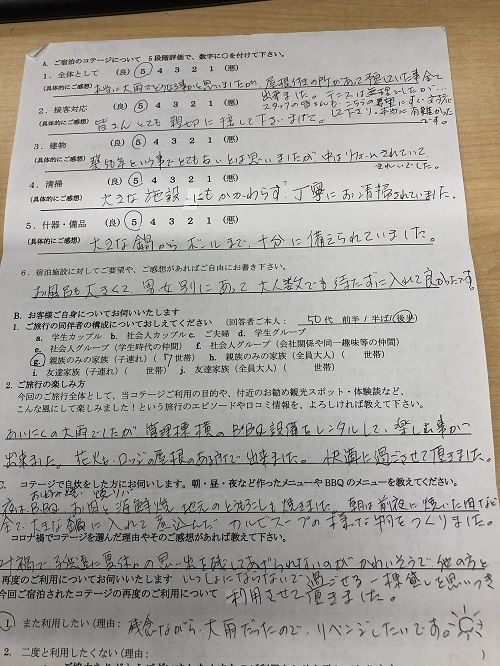 A. ご宿泊のコテージについて 5段階評価で、数字に○を付けて下さい。
1. 全体として (良) 5 4 3 2 1 (悪)
(具体的にご感想) 本当に大雨でどうなる事かと思いましたが 屋根付きの所があって予定していた事全て
出来ました。テニスは無理でしたが…
2. 接客対応 (良) 5 4 3 2 1 (悪) スタッフの皆さんも、こちらの要望にすぐ対応
して下さり、本当に有難かった
です。
(具体的にご感想) 皆さんとても親切に接して下さいました。
3. 建物 (良) 5 4 3 2 1 (悪)
(具体的にご感想) 築50年という事でとても古いとは思いましたが 中はリフォームされていて
きれいでした。
4. 清掃 (良) 5 4 3 2 1 (悪)
(具体的にご感想) 大きな施設にもかかわらず、丁寧にお清掃されていました。
5. 什器・備品 (良) 5 4 3 2 1 (悪)
(具体的にご感想) 大きな鍋からボールまで、十分に備えられていました。
6. 宿泊施設に対してご要望や、ご感想があればご自由にお書き下さい。
お風呂も大きくて、男女別にあって大人数でも待たずに入れて良かったです!
B. お客様ご自身についてお伺いいたします
1. ご旅行の同伴者の構成についておしえてください (回答者ご本人: 50代 前半/半ば/後半)
a. 学生カップル b. 社会人カップル c. ご夫婦 d. 学生グループ
e. 社会人グループ (学生時代の仲間) f. 社会人グループ (会社関係や同一趣味等の仲間)
g. 親族のみの家族 (子連れ) ( 7世帯) h. 親族のみの家族 (全員大人) ( 世帯)
i. 友達家族 (子連れ) ( 世帯) j. 友達家族 (全員大人) ( 世帯)
2. ご旅行の楽しみ方
今回のご旅行全体として、当コテージご利用の目的や、付近のお勧め観光スポット・体験談など、
こんな風にして楽しみました!という旅行のエピソードや口コミ情報を、よろしければ教えて下さい。
あいにくの大雨でしたが管理棟横のBBQ設備をレンタルして、楽しむ事が
出来ました。花火も、ロッジの屋根のある所で出来ました。快適に過ごさせて頂きました。
C. コテージで自炊をした方にお伺いします。朝・昼・夜など作ったメニューやBBQのメニューを教えてください。
お好み焼・焼ソバ
夜はBBQ お肉と海鮮焼 地元のとうもろこしも焼きました。朝は前夜に焼いた肉など
全て、大きな鍋に入れて煮込んだ カルビスープの様な物をつくりました。
コロナ禍でコテージを選んだ理由やそのご感想があれば教えて下さい。
コロナ禍で、子供達に夏休みの思い出を残してあげられないのがかわいそうで、他の方と
再度のご利用についてお伺いいたします いっしょにならないで過ごせる一棟貸しを思いつき
今回ご宿泊されたコテージの再度のご利用について 利用させて頂きました。
1. また利用したい (理由: 残念ながら、大雨だったので、リベンジしたいです。
2. 二度と利用したくない (理由: )